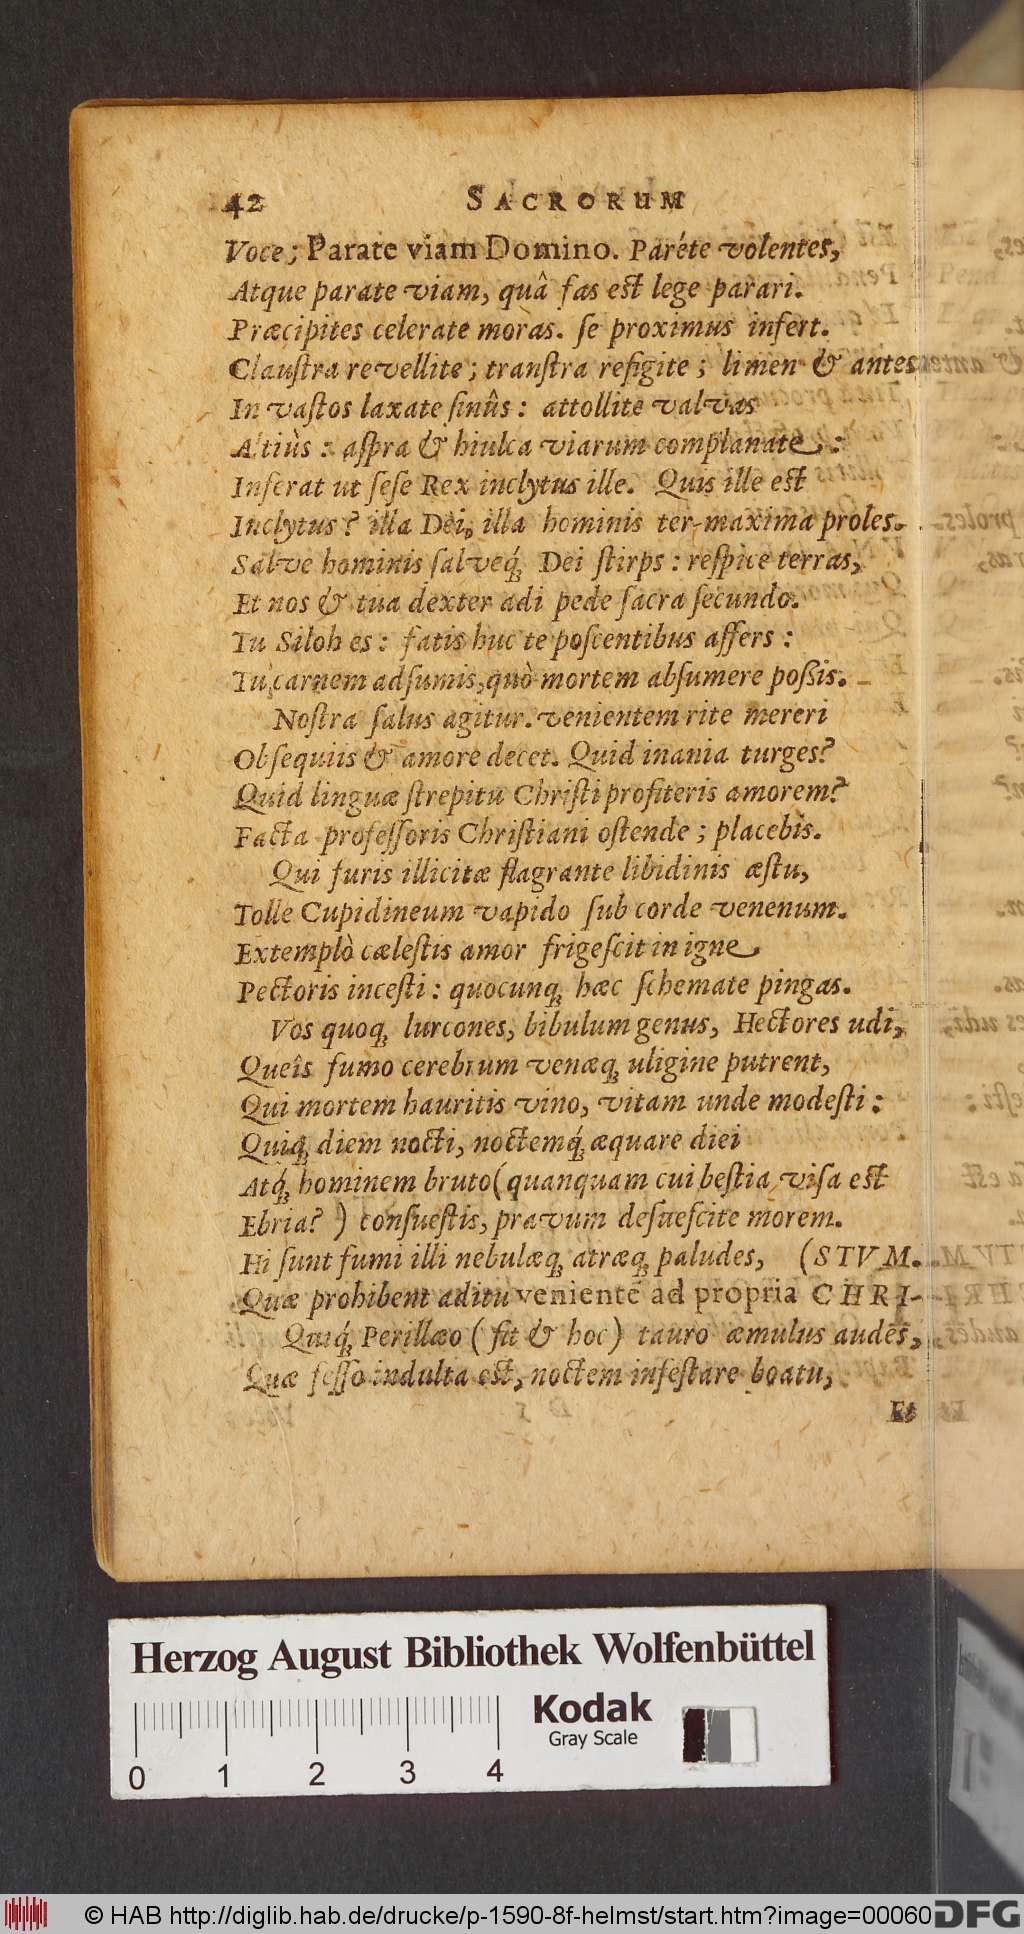 42 SACRORUM
Voce; Parate viam Domino. Paréte volentes,
Atque parate viam, quâ fas est lege parari.
Præcipites celerate moras. se proximus infert.
Claustra revellite; transtra refigite; limen & antes
In vastos laxate sinûs: attollite valvas
Altiùs: aspra & hiulca viarum complanate:
Inferat ut sese Rex inclytus ille. Quis ille est
Inclytus? illa Dei, illa hominis ter-maxima proles.
Salve hominis salveq́; Dei stirps: respice terras,
Et nos & tua dexter adi pede sacra secundo.
Tu Siloh es: fatis huc te poscentibus affers:
Tu carnem adsumis, quò mortem absumere poßis.
Nostra salus agitur. venientem rite mereri
Obsequiis & amore decet. Quid inania turges?
Quid linguæ strepitu Christi profiteris amorem?
Facta professoris Christiani ostende; placebis.
Qui furis illicitæ flagrante libidinis æstu,
Tolle Cupidineum vapido sub corde venenum.
Extemplò cælestis amor frigescit in igne
Pectoris incesti: quocunq; hæc schemate pingas.
Vos quoq; lurcones, bibulum genus, Hectores udi,
Queîs fumo cerebrum venæq; uligine putrent,
Qui mortem hauritis vino, vitam unde modesti:
Quiq; diem nocti, noctemq́; æquare diei
Atq́; hominem bruto (quanquam cui bestia visa est
Ebria?) consuestis, pravum desuescite morem.
Hi sunt fumi illi nebulæq; atræq; paludes, (STVM.
Quæ prohibent aditu venientē ad propria CHRI-
Quiq́; Perillæo (fit & hoc) tauro æmulus audes,
Quæ fesso indulta est, noctem infestare boatu,
Et
Herzog August Bibliothek Wolfenbüttel
Kodak
Gray Scale
0 1 2 3 4
© HAB http://diglib.hab.de/drucke/p-1590-8f-helmst/start.htm?image=00060
DFG